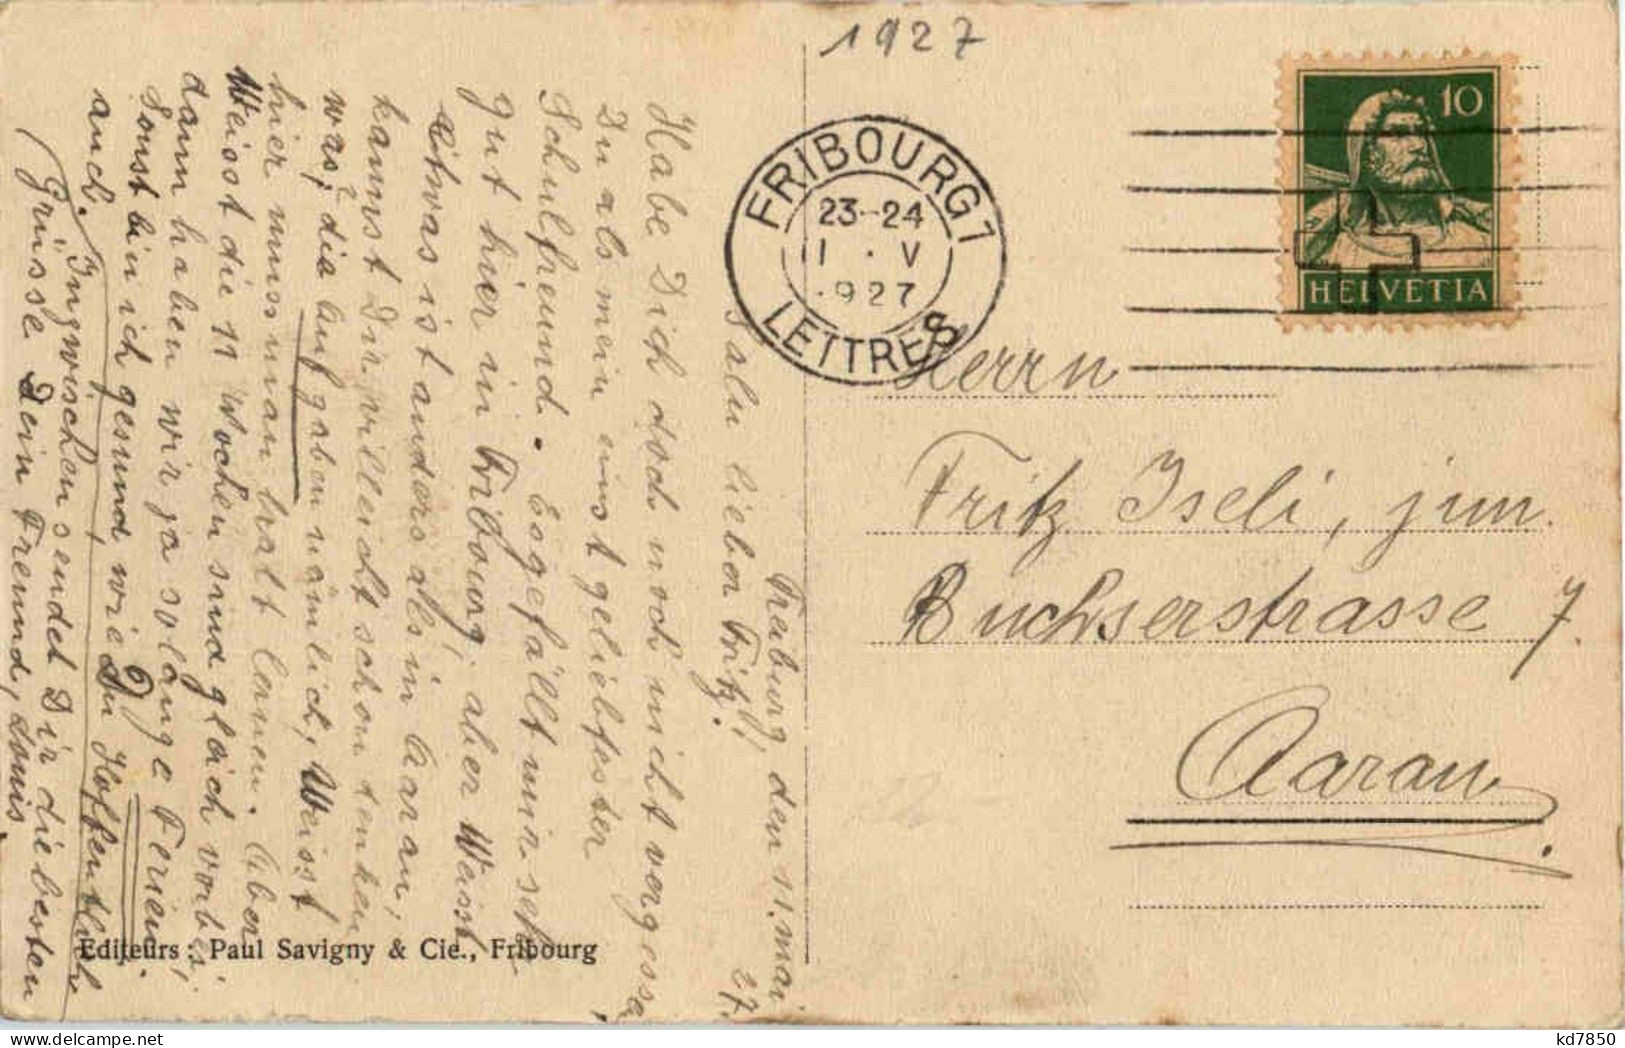 1927
FRIBOURG 1
23-24
11 · V
·927
LETTRES
10
HELVETIA
Herrn
Fritz Iseli, jun.
Buchserstrasse 7.
Aarau
Freiburg, den 11. Mai 27.
Salu lieber Fritz!
Habe Dich doch noch nicht vergessen,
Du als mein einst geliebtester
Schulfreund. Es gefällt mir sehr
gut hier in Fribourg; aber Weisst
etwas ist anders als in Aarau,
kannst Dir villeicht schon denken
was, die Aufgaben nämlich, Weisst
hier muss man halt lernen. Aber
Weisst die 11 Wochen sind gleich vorbei,
dann haben wir ja solange Ferien.
Sonst bin ich gesund, wie Du Hoffentlich
auch.
Ingwischen sendet Dir die besten
Grüsse Dein Freund, Louis.
Editeurs : Paul Savigny & Cie., Fribourg
kd7850